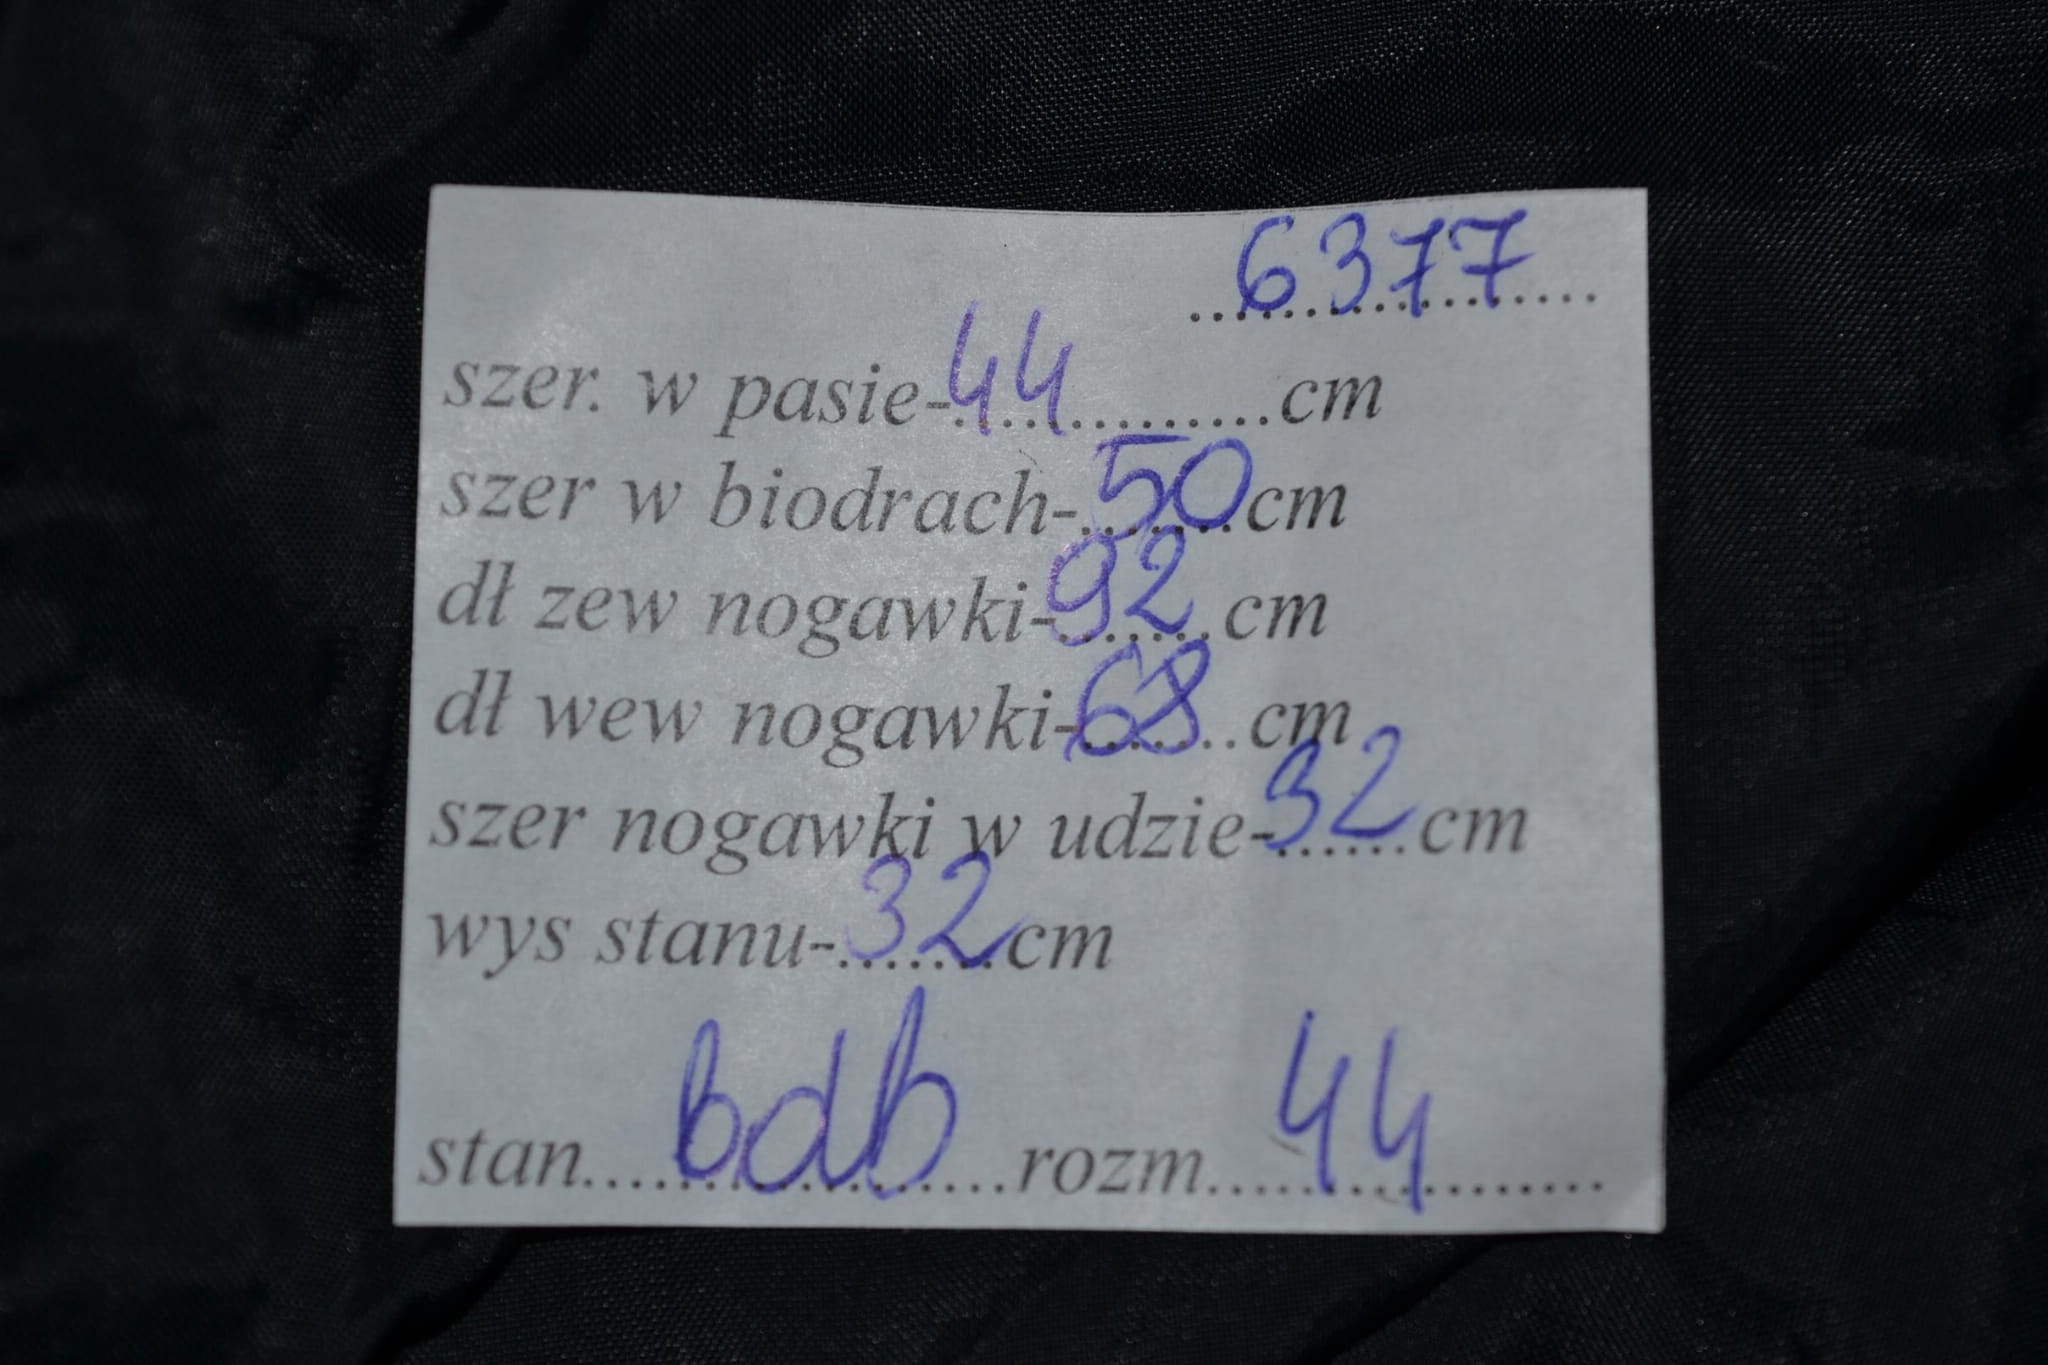 6377
szer. w pasie-44............cm
szer w biodrach-50cm
dł zew nogawki-92 cm
dł wew nogawki-68..cm
szer nogawki w udzie-32cm
wys stanu-32cm
stan....bdb....rozm....44........